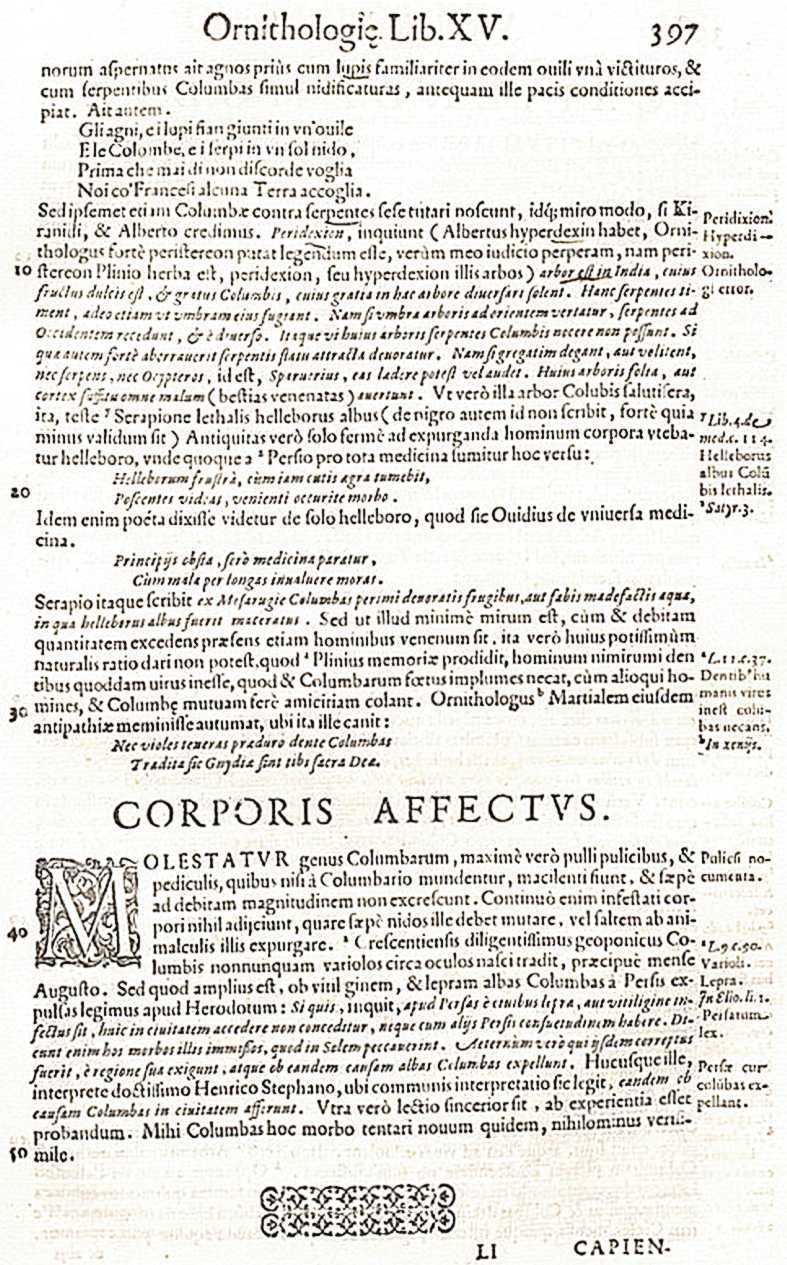 Ornithologię. Lib. XV. 397
norum aſpernatus ait agnos priùs cum lupis familiariter in eodem ouili vnà victituros, &
cum ſerpentibus Columbas ſimul nidificaturas, antequam ille pacis conditiones acci-
piat. Ait autem.
Gli agni, e i lupi fian giunti in vn'ouile
E le Colombe, e i ſerpi in vn ſol nido,
Prima che mai di non diſcorde voglia
Noi co'Franceſi alcuna Terra accoglia.
Sed ipſemet etiam Columbæ contra ſerpentes ſeſe tutari noſcunt, idq; miro modo, ſi Ki-
ranidi, & Alberto credimus. Peridexion, inquiunt (Albertus hyperdexin habet, Orni-
thologus fortè periſtereon putat legendum eſſe, verùm meo iudicio perperam, nam peri-
10 ſtereon Plinio herba eſt, peridexion, ſeu hyperdexion illis arbos) arbor eſt in India, cuius
fructus dulcis eſt, & gratus Columbis, cuius gratia in hac arbore diuerſari ſolent. Hanc ſerpentes ti-
ment, adeo etiam vt vmbram eius fugiant. Nam ſi vmbra arboris ad orientem vertatur, ſerpentes ad
Occidentem recedunt, & è diuerſo. Itaque vi huius arboris ſerpentes Columbis nocere non poſſunt. Si
qua autem fortè aberrauerit ſerpentis flatu attracta deuoratur. Nam ſi gregatim degant, aut volitent,
nec ſerpens, nec Ocypteros, id eſt, Sparuerius, eas lædere poteſt vel audet. Huius arboris folia, aut
cortex ſuffitu omne malum (beſtias venenatas) auertunt. Vt verò illa arbor Colubis ſalutifera,
ita, teſte ʳ Serapione lethalis helleborus albus (de nigro autem id non ſcribit, fortè quia
minus validum ſit) Antiquitas verò ſolo fermè ad expurganda hominum corpora vteba-
tur helleboro, vnde quoque a ˢ Perſio pro tota medicina ſumitur hoc verſu:
Helleborum fruſtrà, cùm iam cutis ægra tumebit,
20 Poſcentes videas, venienti occurite morbo.
Idem enim poëta dixiſſe videtur de ſolo helleboro, quod ſic Ouidius de vniuerſa medi-
cina.
Principijs obſta, ſerò medicina paratur,
Cùm mala per longas inualuere moras.
Serapio itaque ſcribit ex Meſarugie Columbas perimi deuoratis frugibus, aut fabis madefactis aqua,
in qua helleborus albus fuerit maceratus. Sed ut illud minimè mirum eſt, cùm & debitam
quantitatem excedens præſens etiam hominibus venenum ſit, ita verò huius potiſſimùm
naturalis ratio dari non poteſt, quod ᵃ Plinius memoriæ prodidit, hominum nimirum i den
tibus quoddam uirus ineſſe, quod & Columbarum fœtus implumes necat, cùm alioqui ho-
mines, & Columbę mutuam ferè amicitiam colant. Ornithologus ᵇ Martialem eiuſdem
30 antipathiæ meminiſſe autumat, ubi ita ille canit:
Nec violes teneras præduro dente Columbas
Tradita ſic Gnydiæ ſint tibi ſacra Deæ.
Peridixion.
Hyperdi-
xion.
Ornitholo-
gi error.
ʳ Lib. 4. de
med. c. 114.
Helleborus
albus Colū
bis lethalis.
ˢ Satyr. 3.
ᵃ L. 11. c. 37.
Dentib' hu
manis virus
ineſt colu-
bas necans.
ᵇ In xenijs.
CORPORIS AFFECTVS.
MOLESTATVR genus Columbarum, maximè verò pulli pulicibus, &
pediculis, quibus niſi à Columbario mundentur, macilenti fiunt, & ſæpè
ad debitam magnitudinem non excreſcunt. Continuò enim infeſtati cor-
40 pori nihil adijciunt, quare ſæpè nidos ille debet mutare, vel ſaltem ab ani-
malculis illis expurgare. ᵃ Creſcentienſis diligentiſſimus geoponicus Co-
lumbis nonnunquam variolos circa oculos naſci tradit, præcipuè menſe
Auguſto. Sed quod amplius eſt, ob vitiliginem, & lepram albas Columbas à Perſis ex-
pulſas legimus apud Herodotum: Si quis, inquit, apud Perſas è ciuibus lepra, aut vitiligine in-
fectus ſit, huic in ciuitatem accedere non conceditur, neque cum alijs Perſis conſuetudinem habere. Di-
cunt enim hos morbos illis immiſſos, quod in Solem peccauerint. Aeternùm verò qui ijſdem correptus
fuerit, è regione ſua exigunt, atque ob eandem cauſam albas Columbas expellunt. Hucuſque ille,
interprete doctiſſimo Henrico Stephano, ubi communis interpretatio ſic legit, eandem ob
cauſam Columbas in ciuitatem afferunt. Vtra verò lectio ſincerior ſit, ab experientia eſſet
probandum. Mihi Columbas hoc morbo tentari nouum quidem, nihilominus veriſi-
50 mile.
Pulicū no-
cumenta.
ᵃ L. 9. c. 90.
Varioli.
Lepra.
In Clio. li. 1.
Perſarum
lex.
Perſæ cur
colūbas ex-
pellant.
Ll CAPIEN-